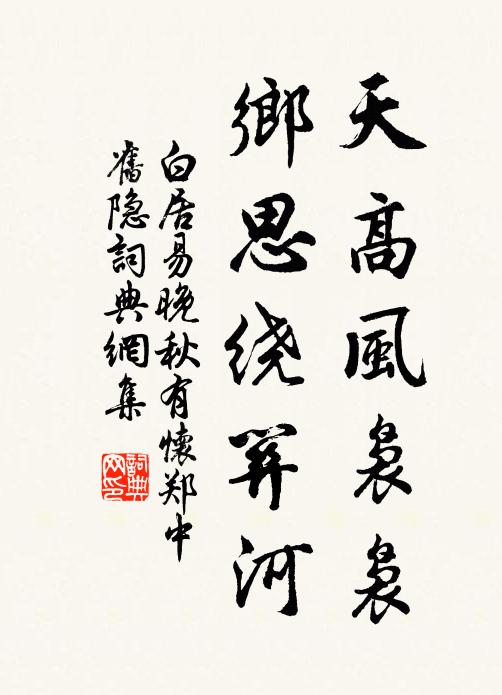 天高風裊裊
鄉思绕關河
白居易晚秋有懷郑中
舊隐詞典網集
詞典
网印